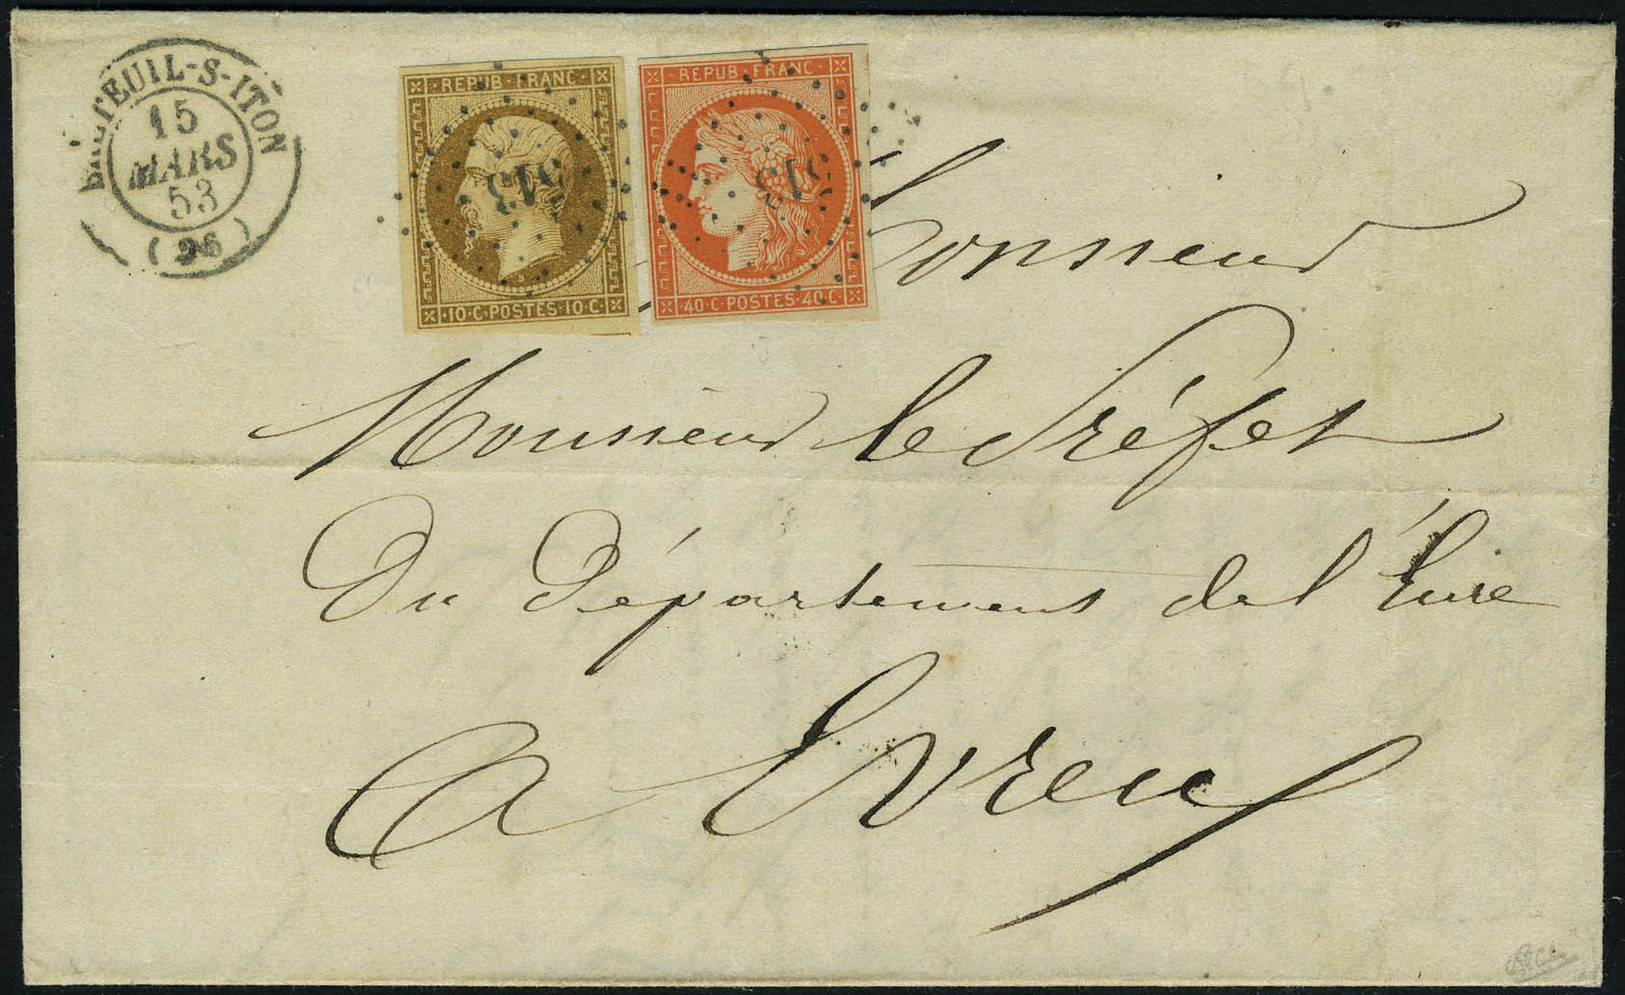 BRETEUIL-S-ITON
15
MARS
53
(26)
REPUB. FRANC.
10·C·POSTES·10·C
REPUB. FRANC.
40·C·POSTES·40·C
Monsieur
Monsieur le Préfet
Du Département de l'Eure
A Evreux